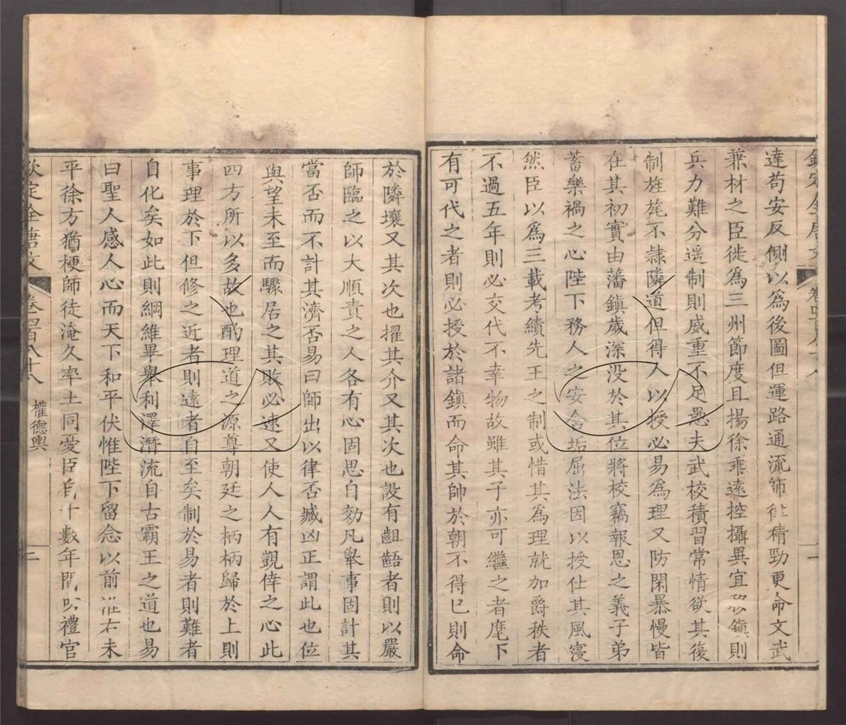 達苟安反側以為後圖但運路通流師徒精勁更命文武
兼材之臣徙為三州節度且揚徐乖遠控攝異宜移鎮則
兵力難分遥制則威重不足愚夫武校積習常情欲其復
制旌旄不隷隣道但得人以授必易為理又防閑暴慢皆
在其初實由藩鎮歲深没於其位將校竊報恩之義子弟
蓄樂禍之心陛下務人之安含垢屈法因以授任其風寖
然臣以為三載考績先王之制或惜其為理就加爵秩者
不過五年則必交代不幸物故雖其子亦可繼之者麾下
有可代之者則必授於諸鎮而命其帥於朝不得已則命
於隣壤又其次也擢其介又其次也設有齟齬者則以嚴
師臨之以大順責之人各有心固思自効凡舉事固計其
當否而不計其濟否易曰師出以律否臧凶正謂此也位
與望未至而驟居之其敗必速又使人人有覬倖之心此
四方所以多故也酌理道之源尊朝廷之柄柄歸於上則
事理於下但修之近者則遠者自至矣制於易者則難者
自化矣如此則綱維畢舉利澤潛流自古霸王之道也易
曰聖人感人心而天下和平伏惟陛下留念以前淮右未
平徐方猶梗師徒淹久率土同憂臣自十數年間以禮官
欽定全唐文 卷四百八十八 權德輿 二